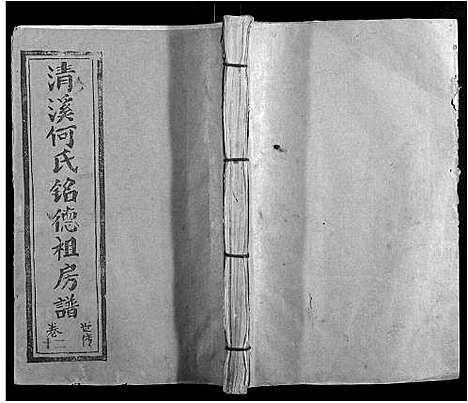 清溪何氏銘德祖房譜
世傳
卷十二